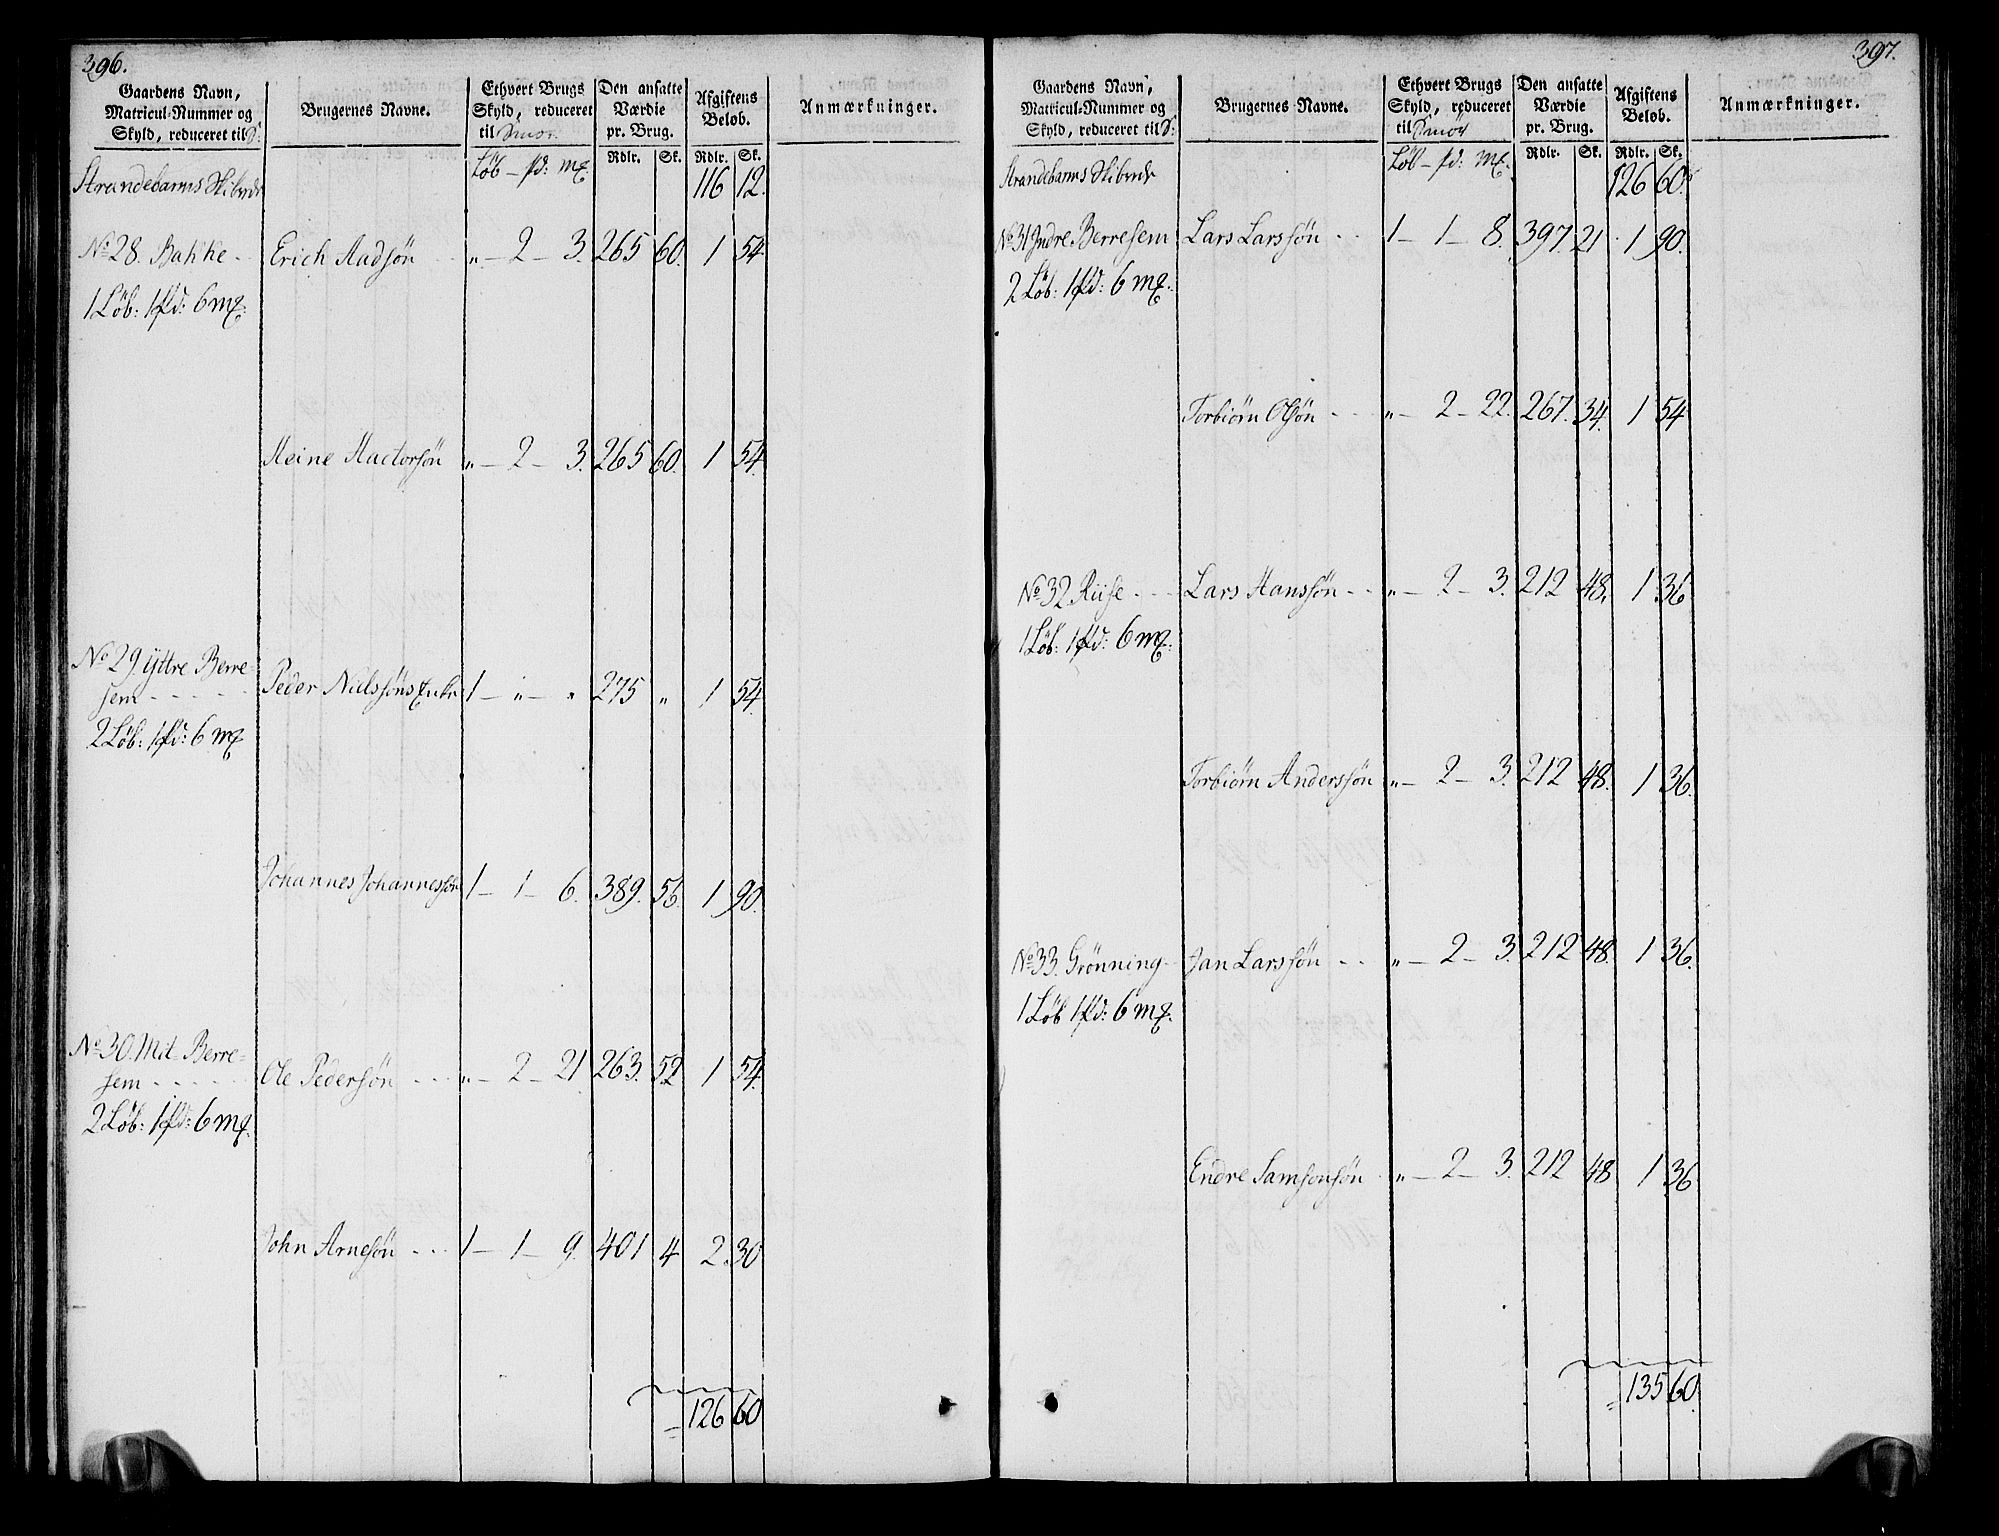 396.
Gaardens Navn, Matricul-Nummer og Skyld, reduceret til S: | Brugernes Navne. | Ethvert Brugs Skyld, reduceret til Smør. | Den ansatte Værdie pr. Brug. | Afgiftens Beløb. | Anmærkninger.
Løb – pd: mk. | Rdlr. | Sk. | Rdlr. | Sk.
Strandebarms Skibrede 116 12.
No 28. Bakke - Erich Aadsøn - - „ – 2 – 3. 265 60. 1 54
1 Løb: 1 pd: 6 mk:
Heine Hactorsøn „ – 2 – 3. 265 60. 1 54
No 29. Yttre Berre-
sem - - - - - Peder Nielssøns Enke 1 – „ – „ 275 „ 1 54
2 Løb: 1 pd: 6 mk
Johannes Johannessøn 1 – 1 – 6. 389. 56. 1 90.
No 30. Mit Berre-
sem - - - - - Ole Pedersøn - - - „ – 2 – 21. 263. 52 1 54
2 Løb: 1 pd: 6 mk.
John Arnesøn - - - 1 – 1 – 9. 401 4 2 30
= 126 60
397.
Gaardens Navn, Matricul-Nummer og Skyld, reduceret til S: | Brugernes Navne. | Ethvert Brugs Skyld, reduceret til Smør | Den ansatte Værdie pr. Brug. | Afgiftens Beløb. | Anmærkninger.
Løb – pd: mk. | Rdlr. | Sk. | Rdlr. | Sk.
Strandebarms Skibrede 126 60.
No 31 Indre Berresem Lars Larssøn - - 1 – 1 – 8. 397. 21. 1 90.
2 Løb: 1 pd: 6 mk.
Torbiørn Olsøn - - - „ – 2 – 22. 267. 34. 1 54
No 32 Riise - - - Lars Hanssøn - - „ – 2 – 3. 212 48. 1 36
1 Løb: 1 pd: 6 mk.
Torbiørn Anderssøn „ – 2 – 3. 212 48. 1 36.
No 33. Grønning - Jan Larssøn - - „ – 2 – 3. 212 48. 1 36.
1 Løb 1 pd: 6 mk.
Endre Samsonsøn - „ – 2 – 3. 212 48 1 36
= 135 60.